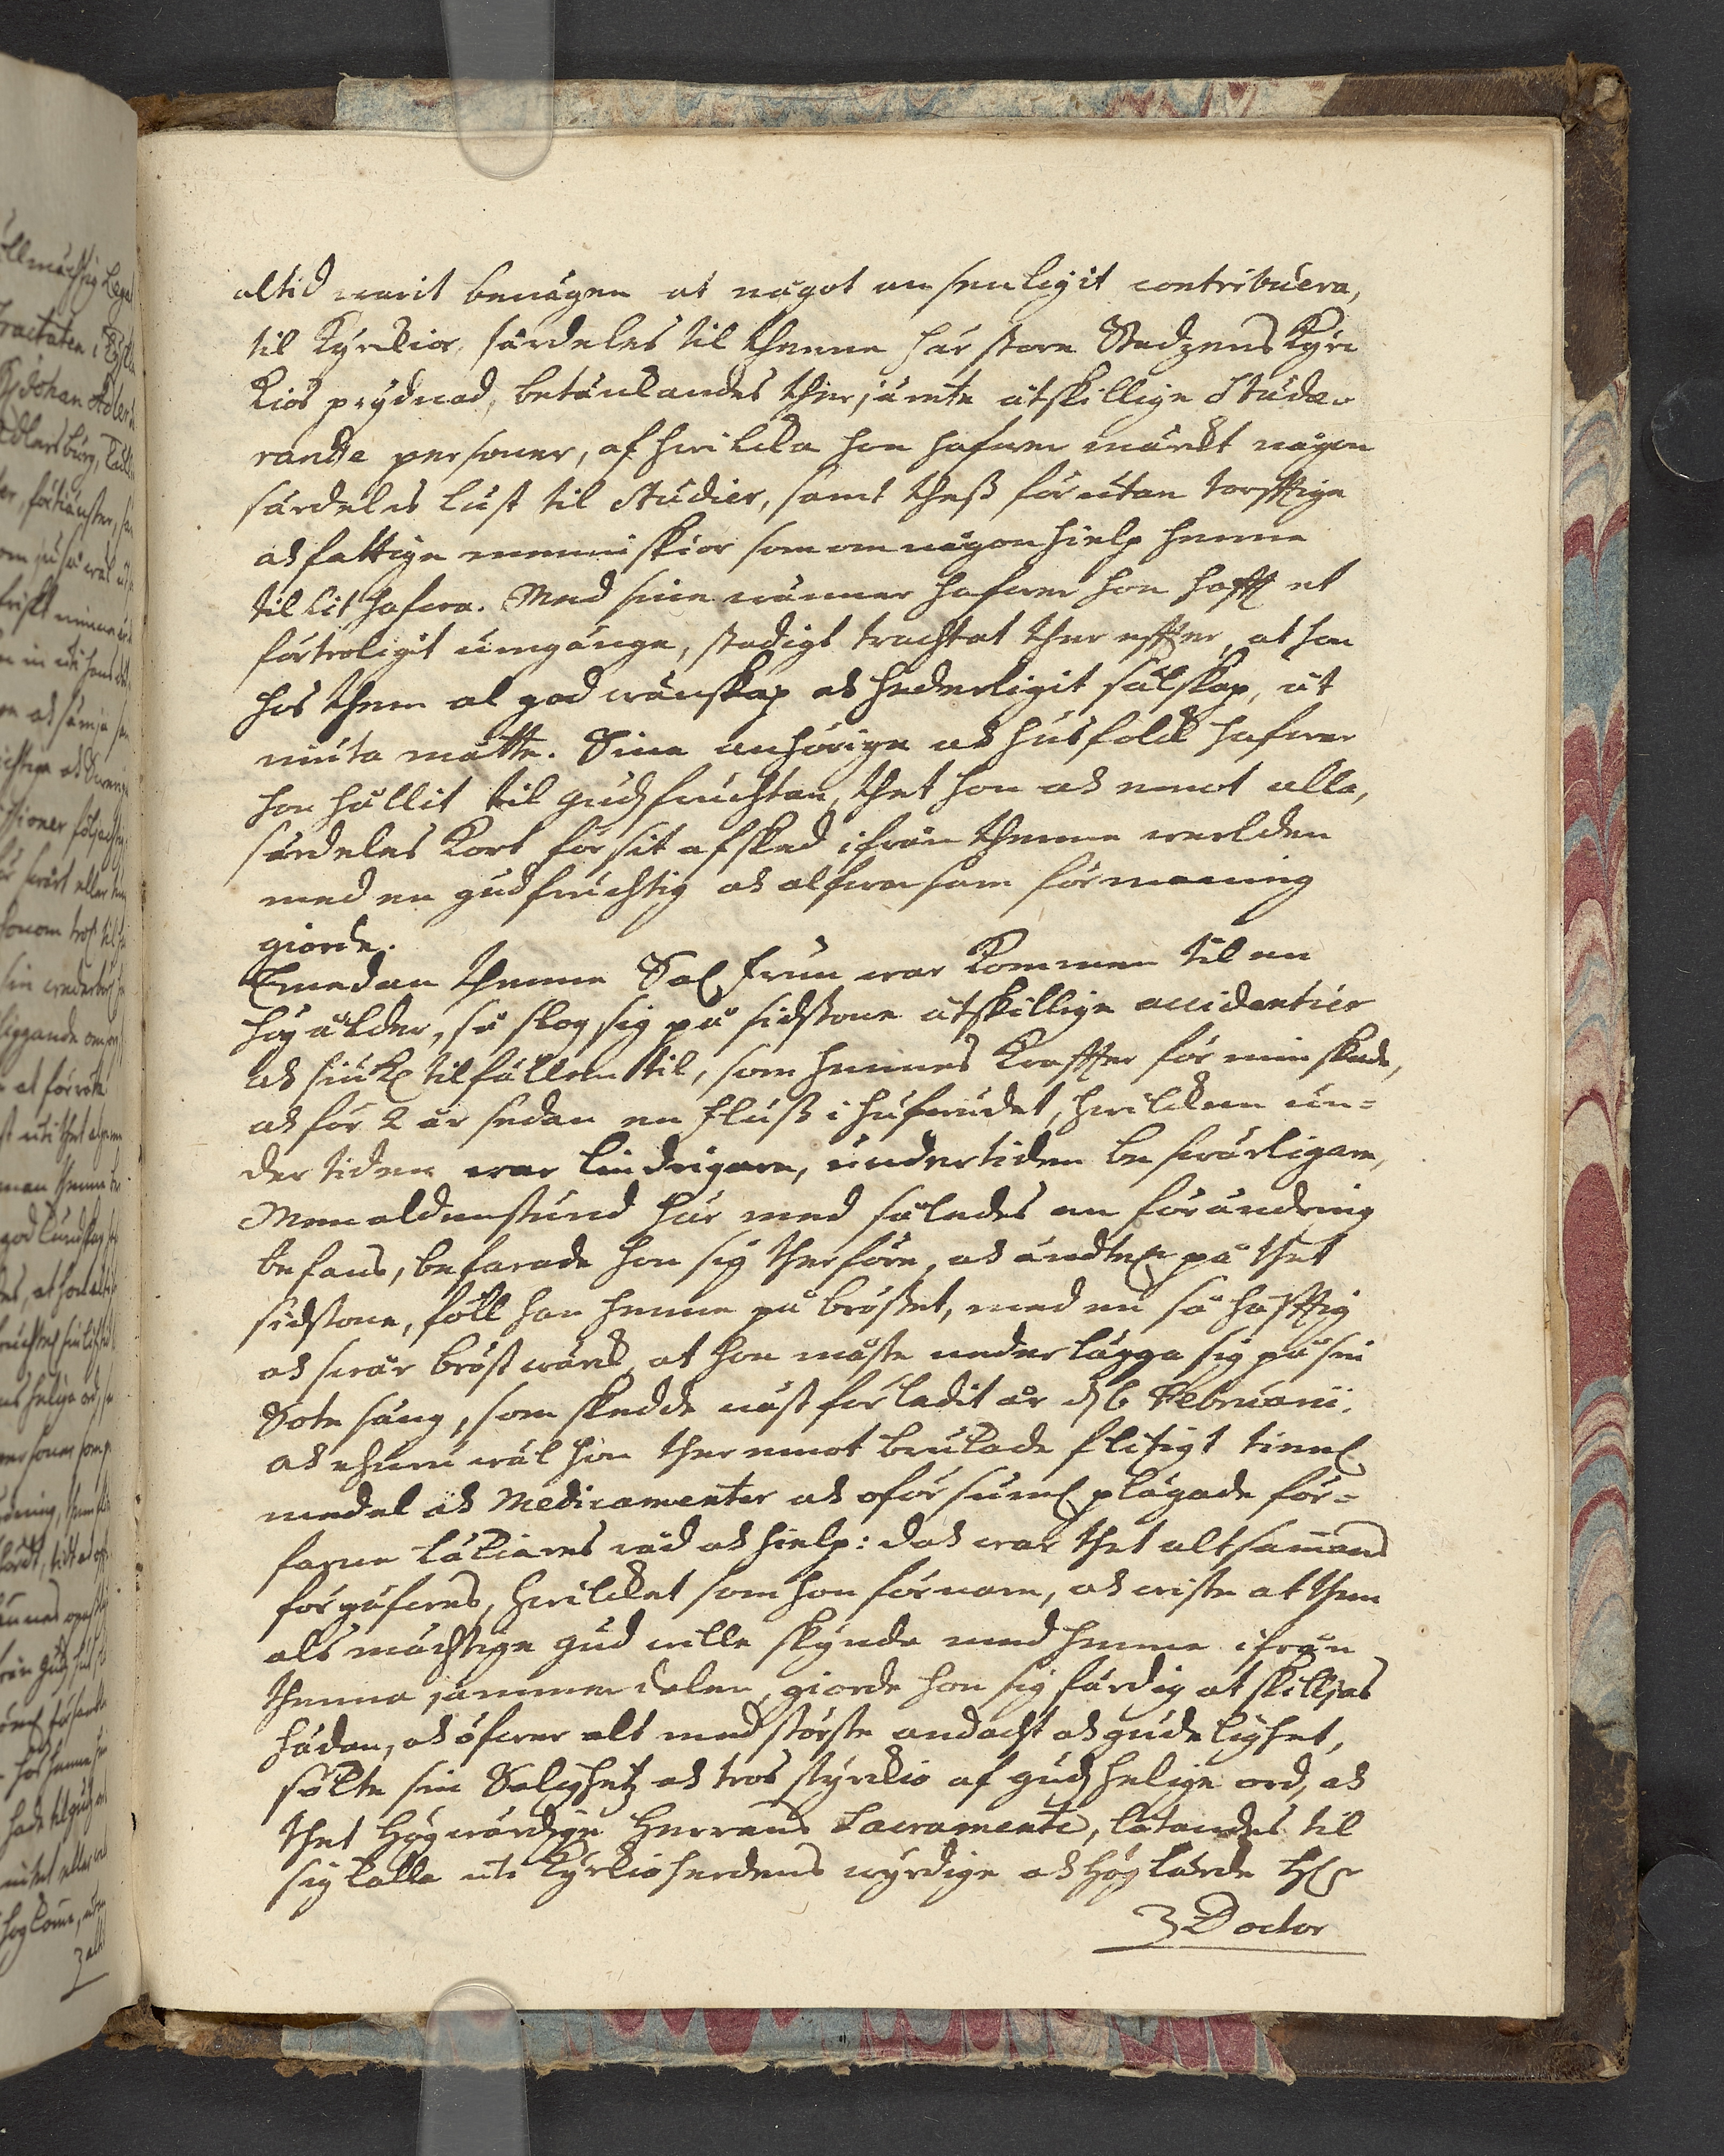 altid warit benägen at något ansenligit contribuera,
til Kyrckior särdeles til thenne här store Stadzens Kyrc
kios prydnad, betänckandes ther jämte åtskillige Stude-
rande personer, af hwilcka hon hafwer märckt någon
särdeles lust til Studier, samt thess förutan torfftige
och fattige menniskior som om någon hielp henne
tillit hafwa. Med sine wänner hafwer hon hafft et
förtroligit umgänge, stadigt trachtat ther effter, at hon
hos them al god wänskap och hederligit sälskap, åt
niuta måtte. Sine anhörige och husfolck hafwer
hon hållit til gudzfruchtan, thet hon och emot alla,
särdeles kort för sit afsked ifrån thenne werlden
med en gudfruchtig och alfwarsam förmaning
giorde.
Emedan thenne Sal. Frun war kommen til en
hög ålder, så slog sig på sidstone åtskillige accidentier
och siukl. tilfällen til, som hennes Kraffter förminskade,
och för 2 år sedan en Fluss i hufwudet, hwilcken un-
dertiden war lindrigare, undertiden beswärligare,
Men aldenstund här med således en förändring
befans, befarade hon sig therföre, och ändtel. på thet
sidstone, föll han henne på bröstet, med en så häfftig
och swår bröstwärck, at hon måste neder lägga sig på sin
Sotesäng, som skedde näst förledit år d. 6 Februarii.
och ehuru wäl hon ther emot brukade flitigt tienl.
medel och Medicamenter och oförsuml. plägade för-
farne Läkiares råd och hielp: doch war thet altsammans
förgäfwes, hwilcket som hon förnam, och wiste at then
alsmächtige gud wille skynda med henne ifrån
thenna jammerdalen, giorde hon sig färdig at skilljas
hädan, och öfwer alt med största andacht och gudelighet,
sökte sin Salighetz och tros styrckio af gudz helige ord, och
thet Högwärdige Herrans Sacramente, låtandes til
sig kalla uti Kyrkioherdens wyrdige och Höglärde H:r
Doctor